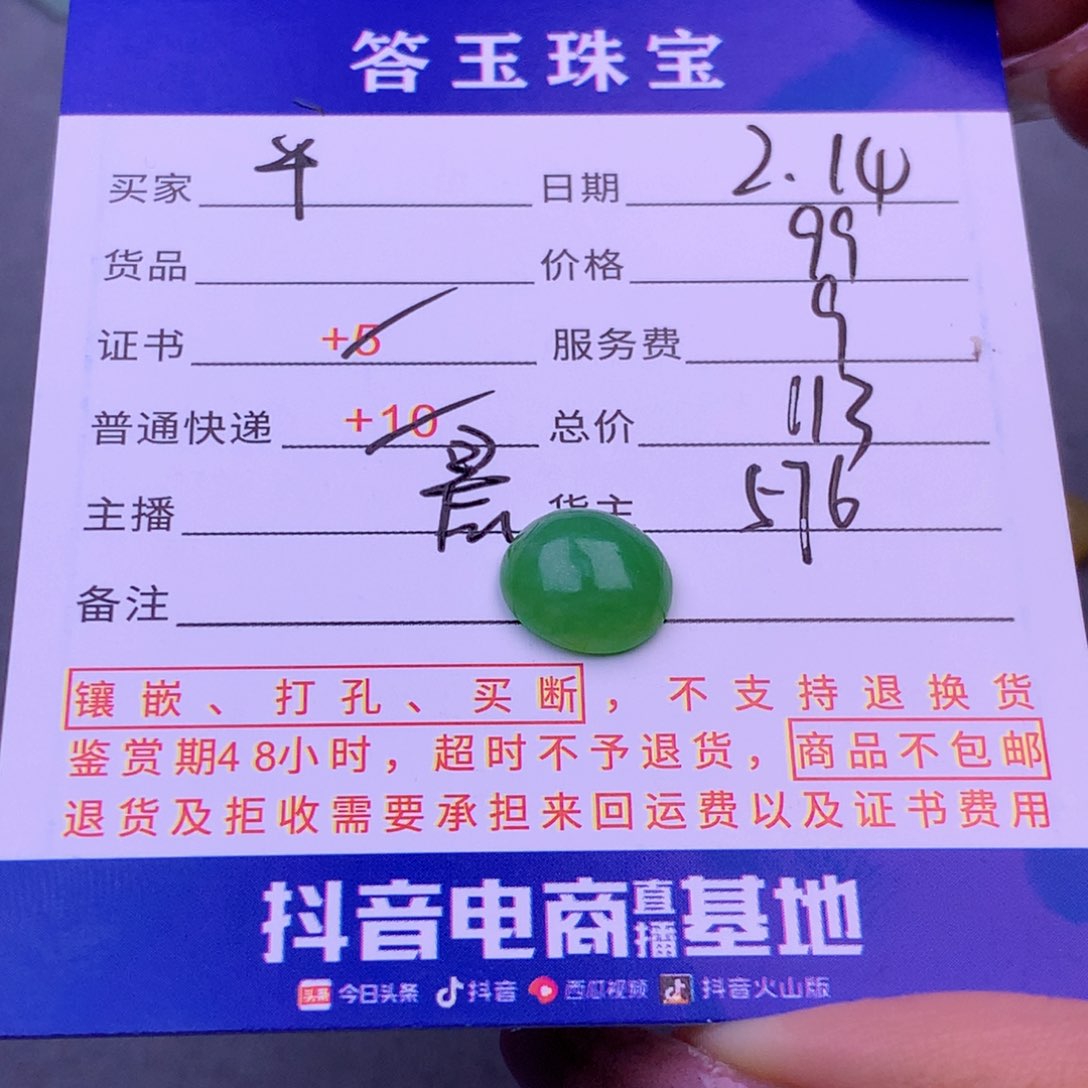 答玉珠宝
买家 牛 日期 2.14
货品 价格 99
证书 +5 服务费 9
普通快递 +10 总价 113
主播 货主 576
备注
镶嵌、打孔、买断，不支持退换货
鉴赏期48小时，超时不予退货，商品不包邮
退货及拒收需要承担来回运费以及证书费用
抖音电商直播基地
头条 今日头条 抖音 西瓜视频 抖音火山版